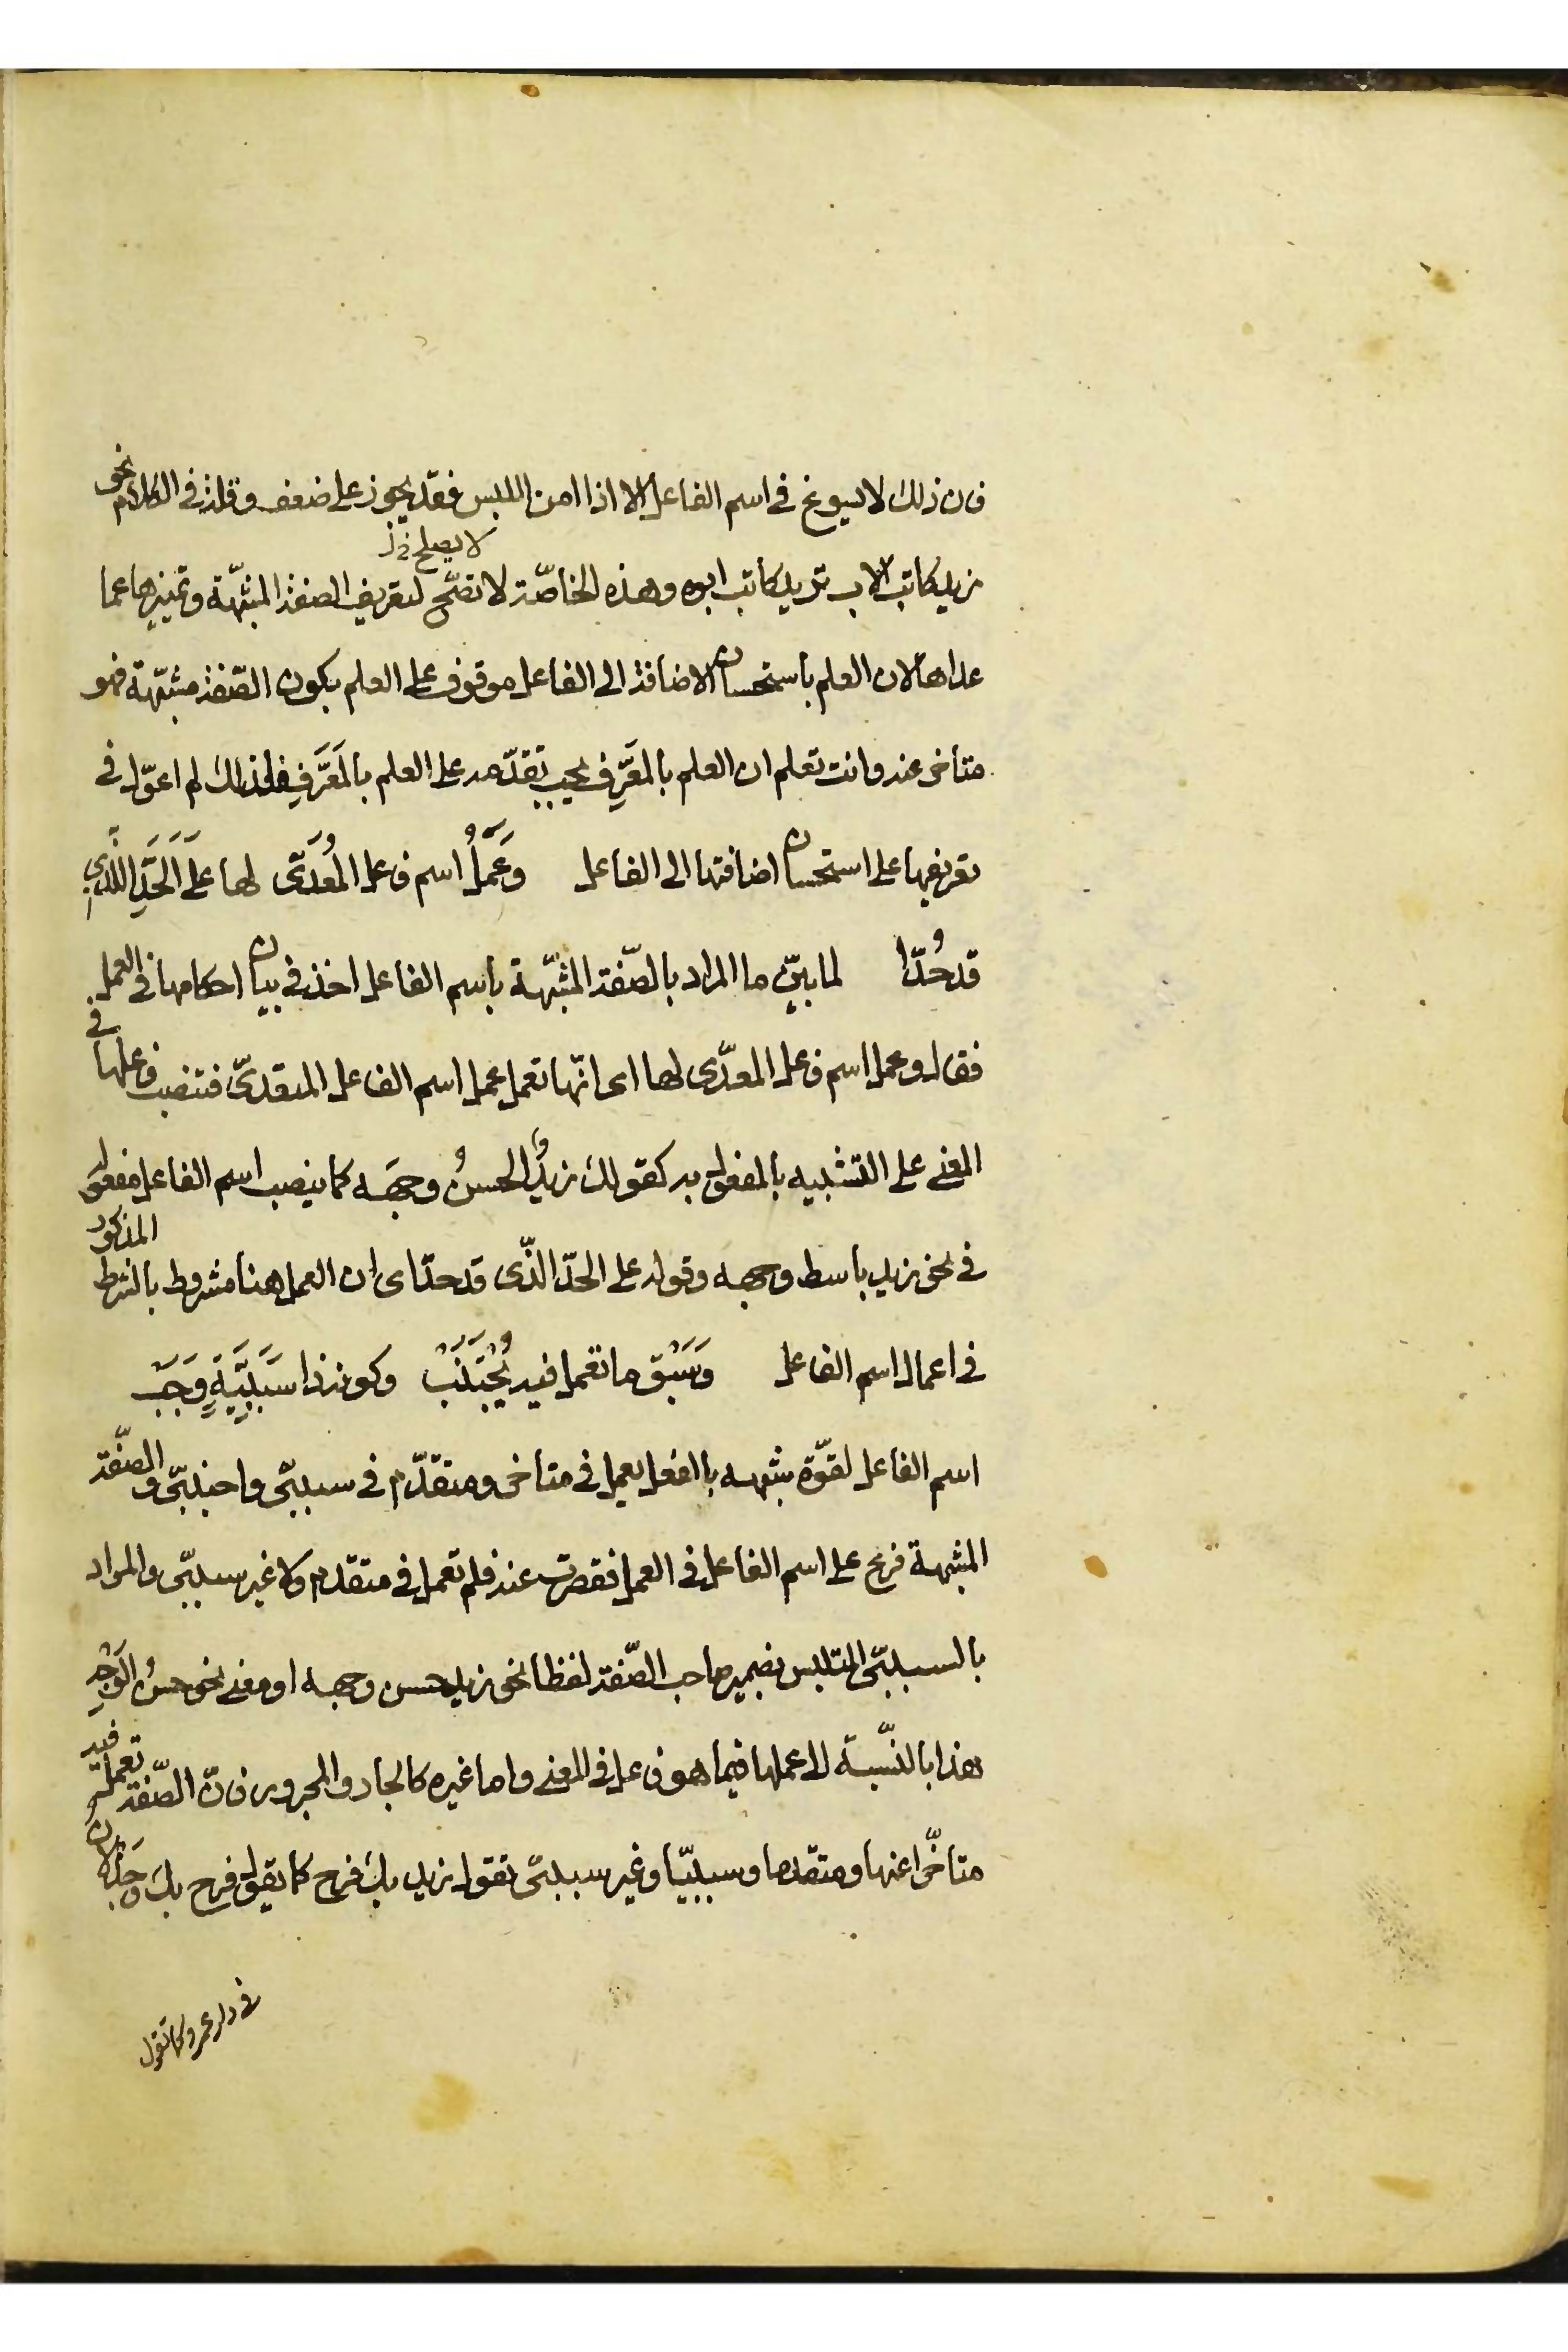 فان ذلك لا يسوغ في اسم الفاعل الا اذا امن اللبس فقد يجوز على ضعف وقلة في الكلام نحو
لا يصلح خ ل
زيد كاتب الاب تريد كاتب ابوه وهذه الخاصّة لا تصّح لتعريف الصفة المشبّهة وتميزها عما
عداها لان العلم باستحسان الاضافة الى الفاعل موقوف على العلم بكون الصّفة مشبّهة فهو
متأخر عنه وانت تعلم ان العلم بالمعَرِّف يجب تقدّمه على العلم بالمعَرَّف فلذلك لم اعوّل في
تعريفها على استحسان اضافتها الى الفاعل وَعَمَلُ اسم فاعل المُعَدّى لها عَلَى الَحَدِّ الَّذي
قد حُدّا لما بيّن ما المراد بالصّفة المشبّهة باسم الفاعل اخذ في بيان احكامها في العمل
فقال وعمل اسم فاعل المعدّى لها اى انّها تعمل عمل اسم الفاعل المتعدّى فتنصب فاعلها في
المعنى على التشبيه بالمفعول به كقولك زيدٌ الحسنُ وجهَه كما ينصب اسم الفاعل مفعوله
في نحو زيد باسط وجهه وقوله على الحدّ الذّى قد حدّا اى ان العمل هنا مشروط بالشرط المذكور
في اعمال اسم الفاعل وَسَبْقُ ما تعمل فيه يُجْتَنَبْ وكونه ذا سَبَبِيَّةٍ وَجَبَ
اسم الفاعل لقوّة شبهه بالفعل يعمل في متاخر ومتقدّم في سببىّ واجنبىّ والصّفة
المشبهة فرع على اسم الفاعل في العمل فقصرت عنه فلم تعمل في متقدم ولا غير سببىّ والمراد
بالسببىّ المتلبس بضمير صاحب الصّفة لفظا نحو زيد حسن وجهه او معنى نحو حسنُ الوَجْهِ
هذا بالنّسبة الى عملها فيما هو فاعل في المعنى واما غيره كالجار والمجرور فانّ الصّفة تعمل فيه
متاخّرا عنها ومتقدما وسببيّا وغير سببىّ تقول زيد بك فرح كما تقول فرح بك وجَذْلان
في دار عمرو كما تقول